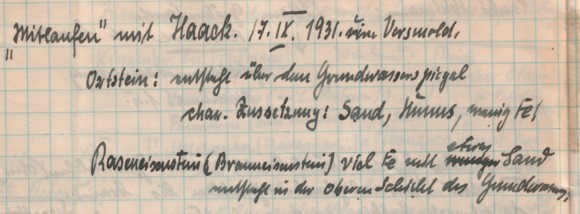 "Mitlaufen" mit Haack. 17. IX. 1931. Versmold.
Ortstein: entsteht über dem Grundwasserspiegel
char. Zussetzung: Sand, Humus, wenig Fe!
Raseneisenstein (Brauneisenstein) viel Fe mit etwas Sand
entsteht in der oberen Schicht des Grundwassers.